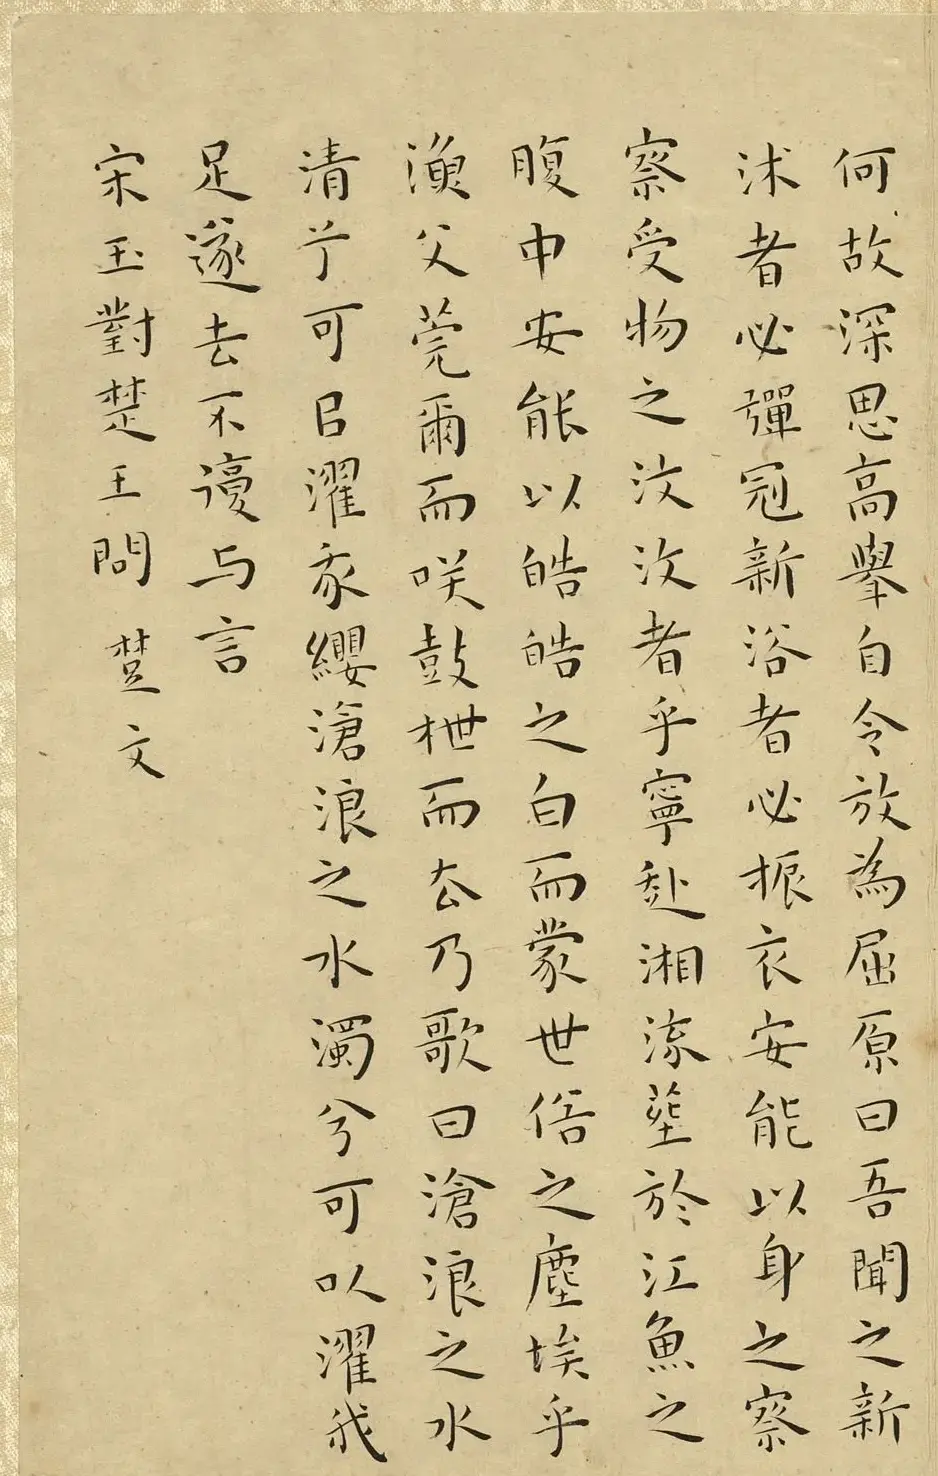 何故深思高舉自令放為屈原曰吾聞之新
沭者必彈冠新浴者必振衣安能以身之察
察受物之汶汶者乎寧赴湘流塟於江魚之
腹中安能以皓皓之白而蒙世俗之塵埃乎
漁父莞爾而咲鼓枻而去乃歌曰滄浪之水
清兮可㠯濯我纓滄浪之水濁兮可以濯我
足遂去不復与言
宋玉對楚王問 楚文